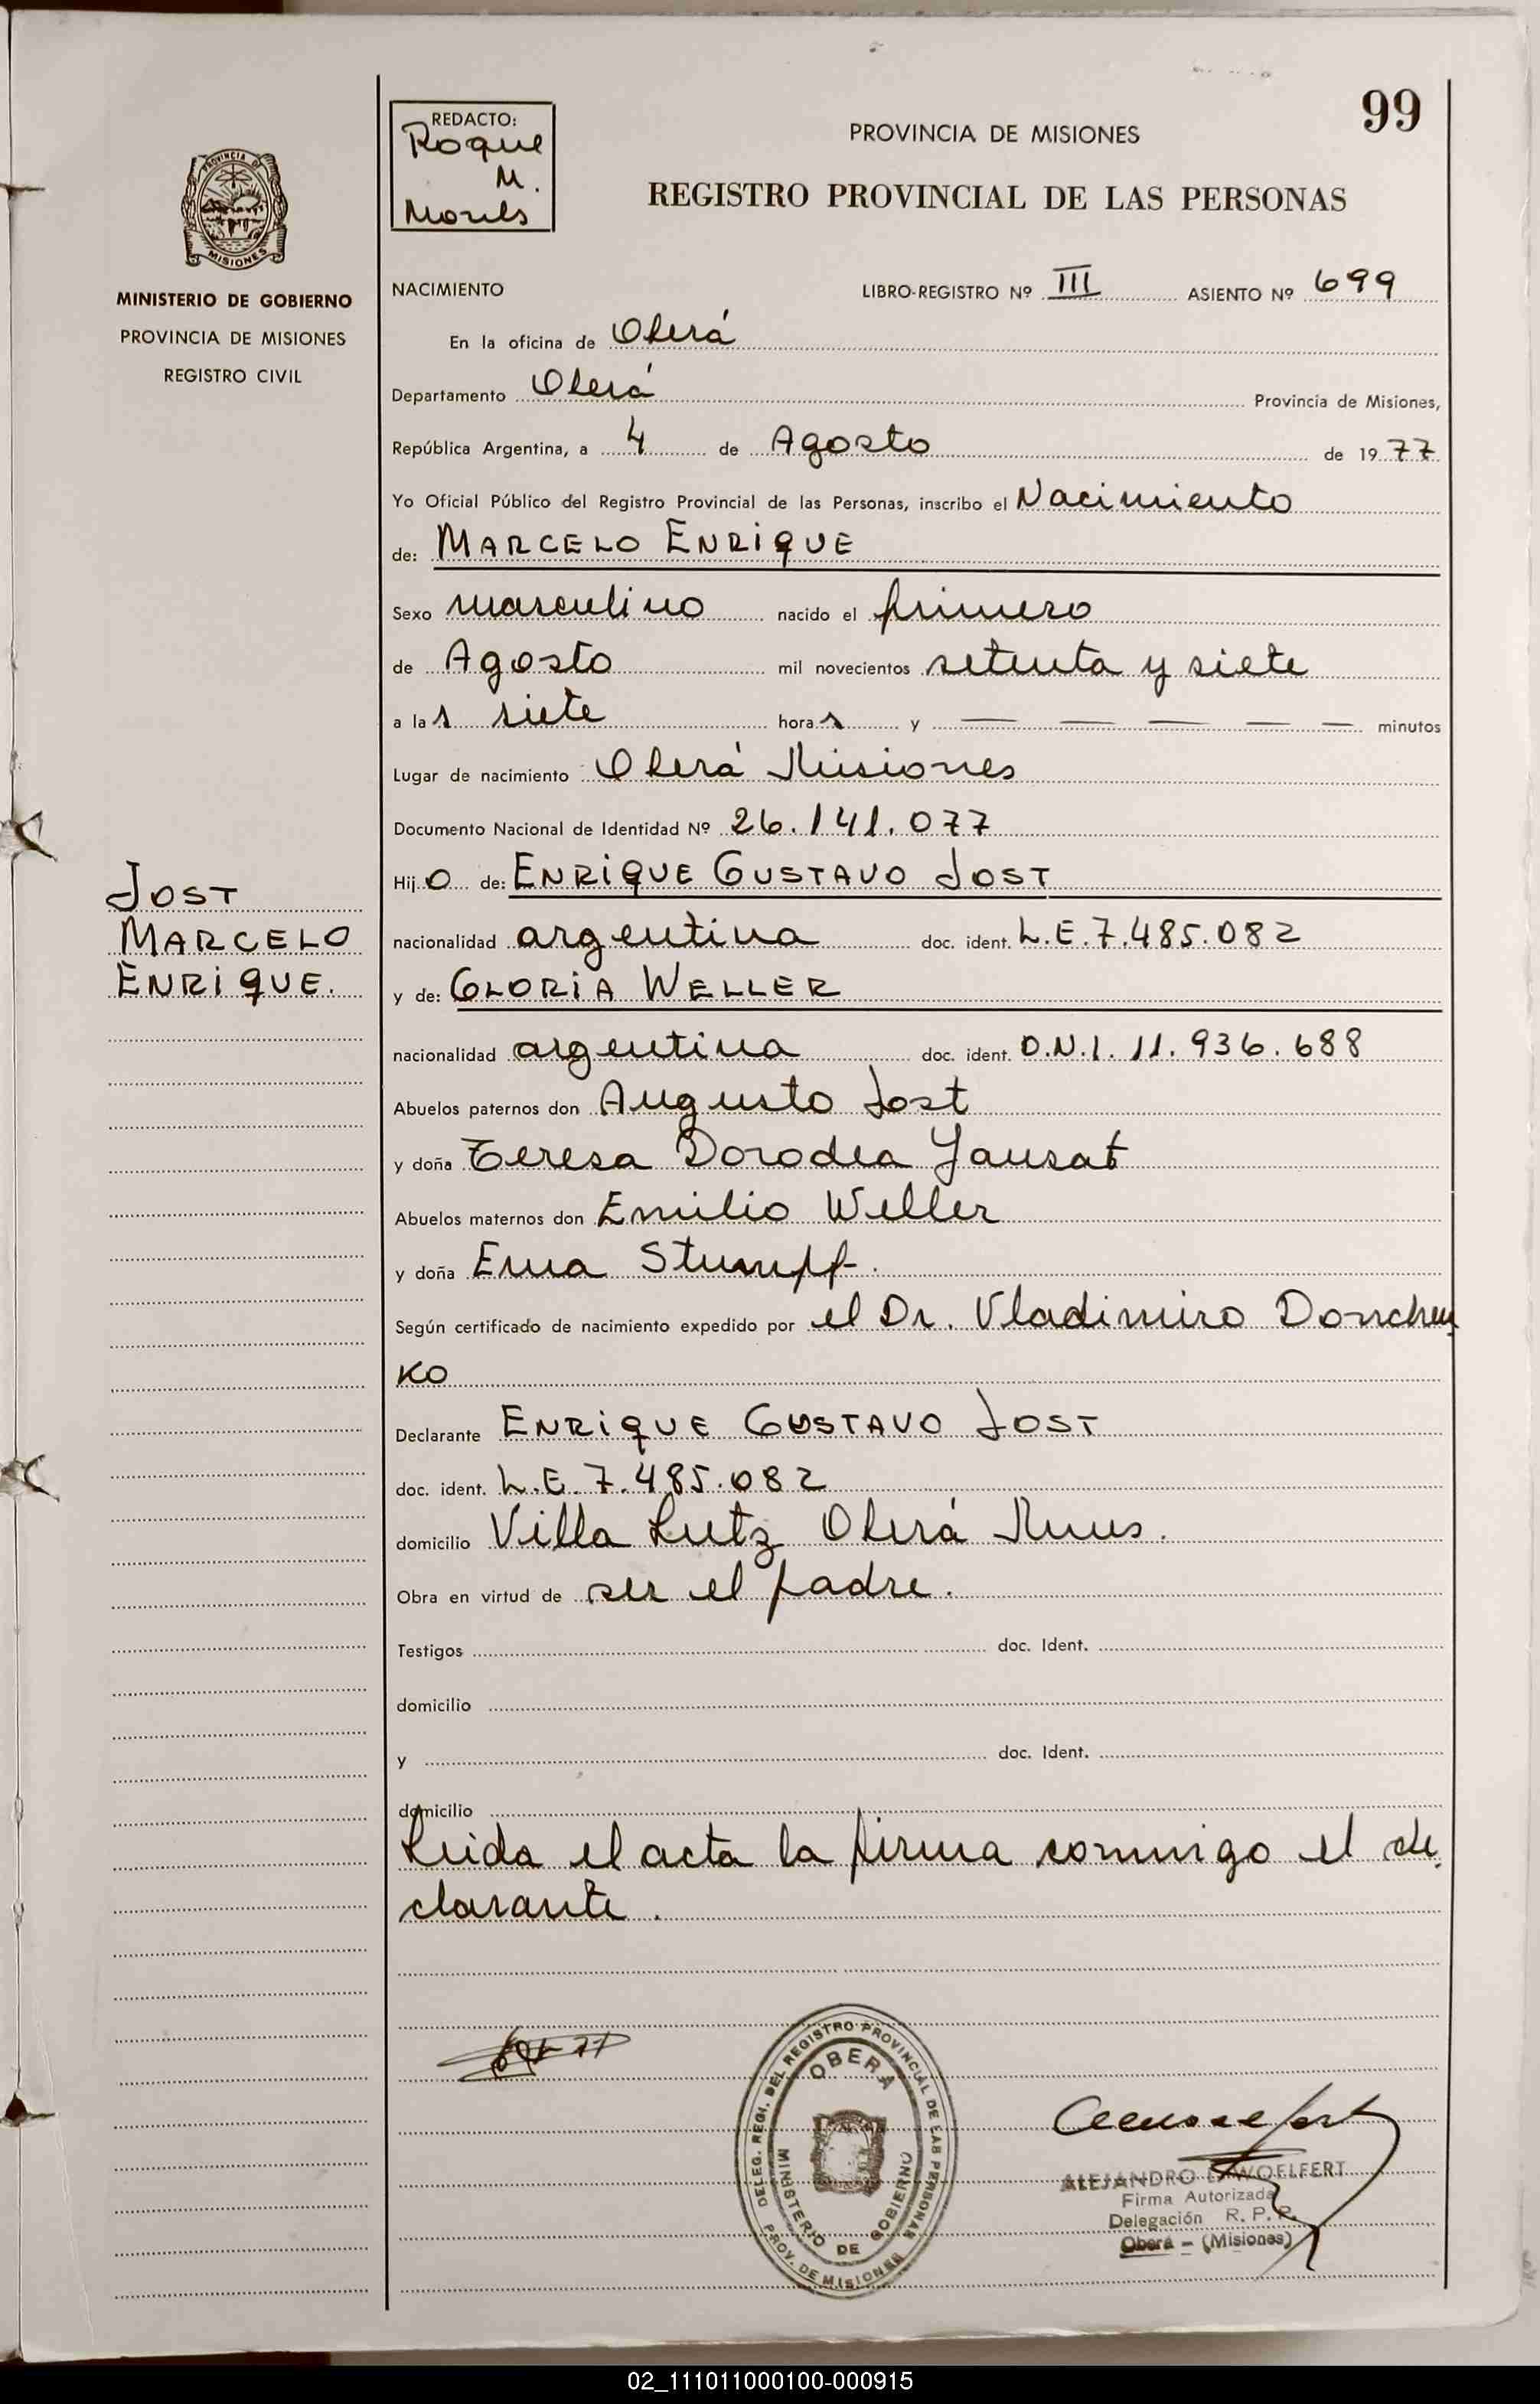 99
REDACTO:
Roque
M.
PROVINCIA DE MISIONES
REGISTRO PROVINCIAL DE LAS PERSONAS
PROVINCIA DE
MISIONES
MINISTERIO DE GOBIERNO
PROVINCIA DE MISIONES
REGISTRO CIVIL
NACIMIENTO LIBRO-REGISTRO Nº III ASIENTO Nº 699
En la oficina de Oberá
Departamento Oberá Provincia de Misiones,
República Argentina, a 4 de Agosto de 1977
Yo Oficial Público del Registro Provincial de las Personas, inscribo el Nacimiento
de: MARCELO ENRIQUE
Sexo masculino nacido el primero
de Agosto mil novecientos setenta y siete
a las siete horas y — — — — — minutos
Lugar de nacimiento Oberá Misiones
Documento Nacional de Identidad Nº 26.141.077
Hijo de: ENRIQUE GUSTAVO JOST
JOST
MARCELO
ENRIQUE.
nacionalidad argentina doc. ident. L.E.7.485.082
y de: GLORIA WELLER
nacionalidad argentina doc. ident. D.N.I. 11.936.688
Abuelos paternos don Augusto Jost
y doña Teresa Dorodea Jansat
Abuelos maternos don Emilio Weller
y doña Ema Stumpf.
Según certificado de nacimiento expedido por el Dr. Vladimiro Donchen
KO
Declarante ENRIQUE GUSTAVO JOST
doc. ident. L.E. 7.485.082
domicilio Villa Lutz Oberá Mnes.
Obra en virtud de ser el padre.
Testigos doc. Ident.
domicilio
y doc. Ident.
domicilio
Leida el acta la firma conmigo el de
clarante.
DELEG. REGI. DEL REGISTRO PROVINCIAL DE LAS PERSONAS
OBERA
MINISTERIO DE GOBIERNO
PROV. DE MISIONES
ALEJANDRO WOELFERT
Firma Autorizada
Delegación R. P. P.
Oberá - (Misiones)
02_111011000100-000915